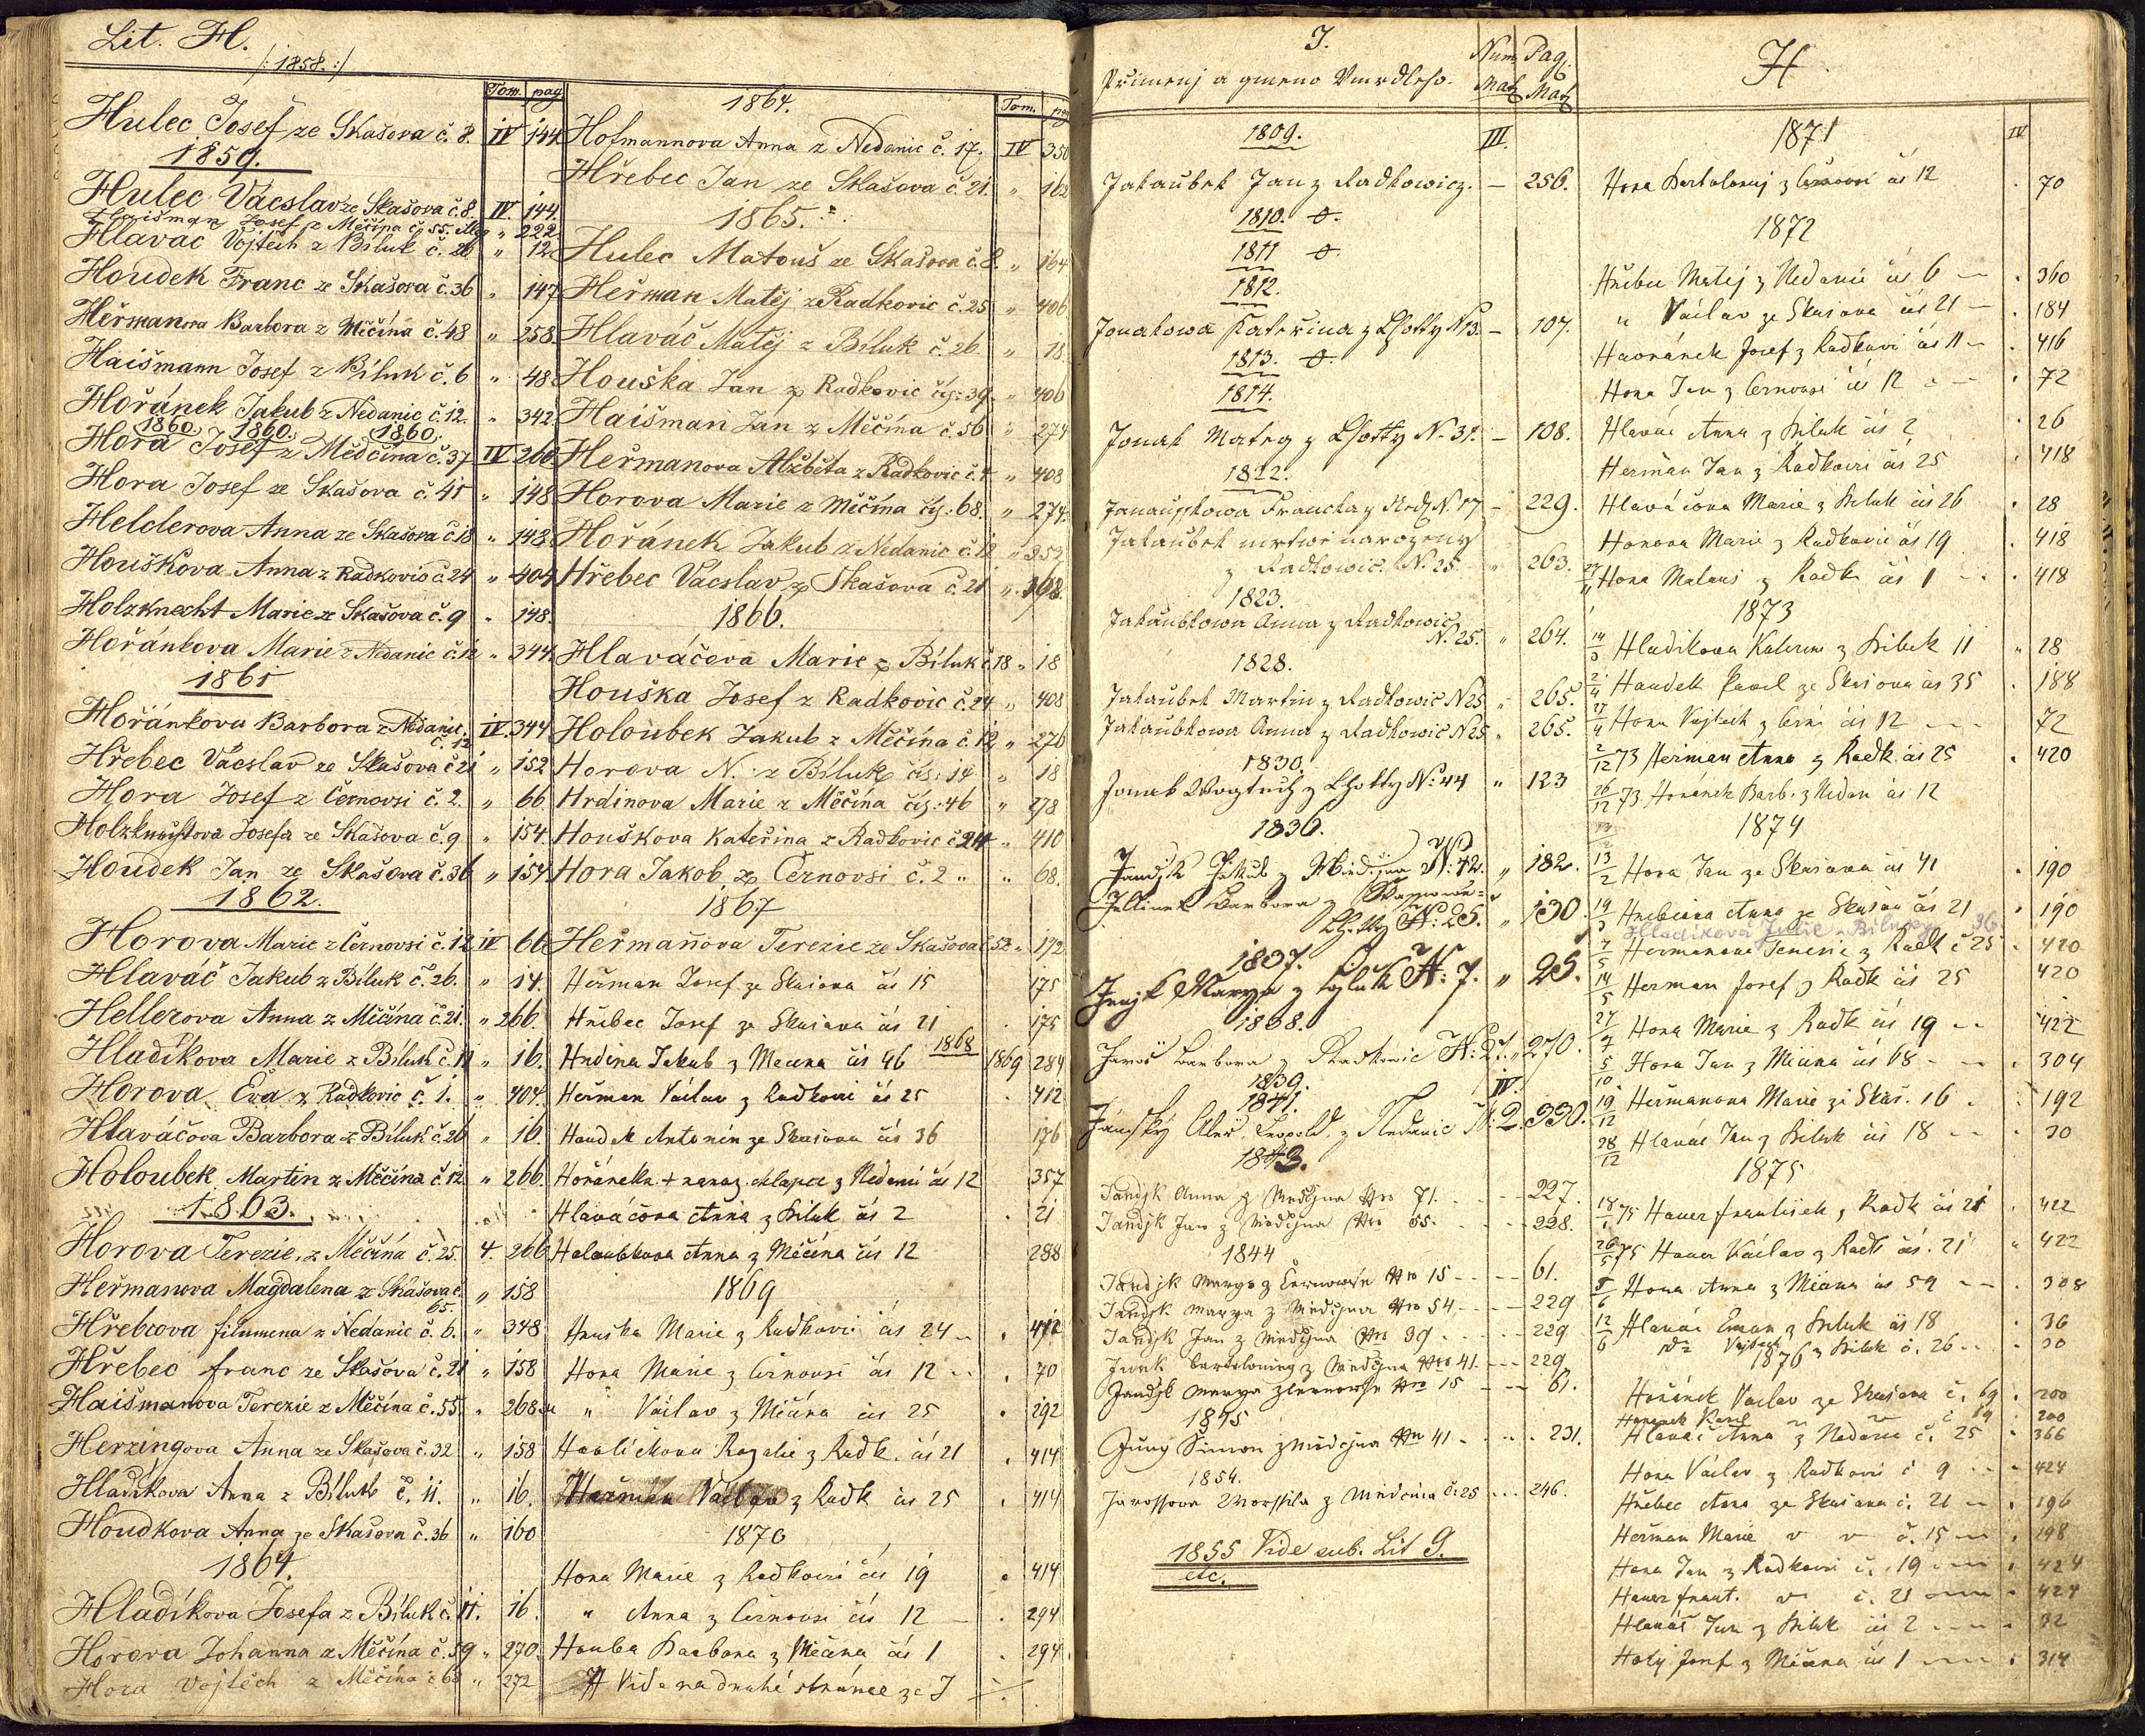 Lit. H.
/: 1858. :/
Tom. pag
Hulec Josef ze Skašova č. 8. IV 144
1859.
Hulec Vácslav ze Skašova č. 8. IV. 144.
Haišman Josef z Měčína č. 55. " 222
Hlaváč Vojtěch z Bíluk č. 26 " 12
Houdek Franc ze Skašova č. 36 " 147
Heřmanova Barbora z Měčína č. 48 " 258
Haišmann Josef z Bíluk č. 6 " 48
Hořánek Jakub z Nedanic č. 12. " 342
1860. 1860. 1860.
Hora Josef z Mědčína č. 37 IV 260
Hora Josef ze Skašova č. 41 " 148
Helclerova Anna ze Skašova č. 18 " 148
Houškova Anna z Radkovic č. 24 " 404
Holzknecht Marie ze Skašova č. 9 " 148.
Hořánkova Marie z Nedanic č. 12 " 344
1861
Hořánkova Barbora z Nedanic. č. 12 IV. 344
Hřebec Vácslav ze Skašova č 21 " 152
Hora Josef z Černovsi č. 2. " 66
Holzknechtova Josefa ze Skašova č. 9 " 154
Houdek Jan ze Skašova č. 36 " 154
1862.
Horova Marie z Černovsi č. 12 IV 66
Hlaváč Jakub z Bíluk č. 26. " 14.
Hellerova Anna z Měčína č. 21. " 266.
Hladíkova Marie z Bíluk č. 11 " 16.
Horova Eva z Radkovic č. 1. " 404.
Hlaváčova Barbora z Bíluk č. 26 " 16.
Holoubek Martin z Měčína č. 12 " 266.
1863.
Horova Terezie, z Měčína č. 25. 4. 266
Heřmanova Magdalena ze Skašova č. 65. " 158
Hřebcova filumena z Nedanic č. 6. " 348
Hřebec franc ze Skašova č. 21 " 158
Haišmanova Terezie z Měčína č. 55. " 268
Herzingova Anna ze Skašova č. 32 " 158
Hladíkova Anna z Bíluk č. 11. " 16.
Houdkova Anna ze Skašova č. 36 " 160
1864.
Hladíkova Josefa z Bíluk č. 11. 16.
Horova Johanna z Měčína č. 59 " 270.
Hora Vojtěch z Měčína č 68 " 272
1864.
Tom. pag
Hofmannova Anna z Nedanic č. 17. IV 350
Hřebec Jan ze Skašova č. 21. " 162
1865.
Hulec Matouš ze Skašova č. 8. " 164
Heřman Matěj z Radkovic č. 25 " 406
Hlaváč Matěj z Bíluk č. 26. " 18
Houška Jan z Radkovic čís: 39. " 406
Haišman Jan z Měčína č. 56 " 274
Heřmanova Alžběta z Radkovic č. 4 " 408
Horova Marie z Měčína čís: 68. " 274.
Hořánek Jakub z Nedanic č. 12 " 352
Hřebec Vácslav z Skašova č. 21 " 168.
1866.
Hlaváčova Marie z Bíluk č. 18 " 18
Houška Josef z Radkovic č. 24 " 408
Holoubek Jakub z Měčína č. 12 " 276
Horova N. z Bíluk čís: 14 " 18
Hrdinova Marie z Měčína čís: 46 " 278
Houškova Kateřina z Radkovic č 24 " 410
Hora Jakob z Černovsi č. 2 " " 68.
1867
Heřmanova Terezie ze Skašova č 53 " 172
Heřman Josef ze Skasova čís 15 175
Hřibec Josef ze Skasova čís 21 . 175
Hrdina Jakub z Mecina čís 46 1868 1869 284
Heřman Václav z Radkovic čís 25 . 412
Houdek Antonín ze Skasova čís 36 176
Hořánek + naroz. chlapce z Nedanic čís 12 357
Hlaváčova Anna z Biluk čís 2 . 21
Holoubkova Anna z Měčína čís 12 288
1869
Houska Marie z Radkovic čís 24 . 412
Hora Marie z Černovsi čís 12 . 70
" Václav z Měčína čís 25 . 292
Havlíčkova Rozalie z Radk. čís 21 . 414
Heřman Václav z Radk čís 25 . 414
1870
Hora Marie z Radkovic čís 19 . 414
" Anna z Černovsi čís 12 . 294
Houba Barbora z Měčína čís 1 . 294
H Vide na druhé stránce ze J
J.
Přimenj a gmeno Vmrdleho. Num Mat Pag. Mat
1809. III.
Jakaubek Jan z Radkowicz. — 256.
1810. 0.
1811 0.
1812.
Jonakowa Kateřina z Lhotty N 13. — 107.
1813. 0.
1814.
Jonak Matěg z Lhotty N. 31. — 108.
1822.
229.
Jakaubek mrtwě narozeny
z Radkowic. N. 25. " 263.
1823.
Jakaubkowa Anna z Radkowic
N. 25. " 264.
1828.
Jakaubek Martin z Radkowic N 25 " 265.
Jakaubkowa Anna z Radkowic N 25 " 265.
1830.
Jonak Wogtěch z Lhotty N. 44 " 123
1836.
N. 42. " 182.
Jellinek Barbora z
Lhotty N: 25. " 130.
1837.
Marya z N: 7. " 25.
1838.
Jaroš Barbora z Radkowic N: 27. " 270.
1839.
1841. IV.
Jánský Leopold z Nedanic N: 2. 330.
1843.
Jandjk Anna z Medčjna Nro 71. - - - 227.
Jandjk Jan z Medčjna Nro 55. - - - 228.
1844
Jandjk Marya z Černowse Nro 15 - - - 61.
Jandjk Marya z Medčjna Nro 54. - - - 229
Jandjk Jan z Medčjna Nro 39 - - - 229
Junk Bartolomeg z Medčjna Nro 41. - - - 229
Jandjk Marya z Černowse Nro 15 - - - 61.
1845
Jung Simon z Medčjna Nro 41 - - - 231.
1854.
Jarossova Worssila z Medčina č. 25 - - - 246.
1855 Vide sub. Lit G.
etc.
H.
1871 IV
Hora Bartolomej z Černovsi čís 12 . 70
1872
Hřibec Matěj z Nedanic čís 6 — . 360
" Václav ze Skasova čís 21 — . 184
Havránek Josef z Radkovic čís 11 — . 416
Hora Jan z Černovsi čís 12 . 72
Hlaváč Anna z Biluk čís 2 . 26
Heřman Jan z Radkovic čís 25 . 418
Hlaváčova Marie z Biluk čís 26 . 28
Horova Marie z Radkovic čís 19 . 418
Hora Matous z Radk čís 1 . 418
1873
Hladikova Katerina z Biluk 11 " 28
Houdek Karel ze Skasova čís 35 . 188
Hora Vojtěch z Čern čís 12 72
2/12 73 Heřman Anna z Radk. čís 25 . 420
26/12 73 Hořánek Barb. z Nedan čís 12
1874
13/2 Hora Jan ze Skasova čís 41 . 190
19/3 Hřebcova Anna ze Skašov čís 21 . 190
Hladíkova Julie z Biluky 36
7/5 Hermanova Terezie z Radk č 25 . 420
14/5 Herman Josef z Radk čís 25 420
Hora Marie z Radk čís 19 422
5/10 Hora Jan z Měčína čís 68 . 304
19/12 Heřmanova Marie ze Skaš. 16 . 192
28/12 Hlaváč Jan z Biluk čís 18 . 30
1875
75 Hauer František z Radk čís 21 . 422
26/5 75 Hauer Václav z Radk čís. 21 " 422
Hora Anna z Měčína čís 59 . 308
12/6 Hlaváč Eman z Biluk čís 18 . 36
z Biluk č. 26 . 30
1876
Hořánek Vaclav ze Skasova č. 69 . 200
Hořánek Karel č 69 . 200
Hlaváč Anna z Nedanic č. 25 . 366
Hora Václav z Radkovic č 9 . 424
Hřebec Anna ze Skasova č. 21 . 196
Heřman Marie v v č. 15 . 198
Hora Jan z Radkovic č. 19 . 424
Hauer frant. v č. 21 . 424
Hlaváč Jan z Biluk čís 2 . 32
Holý Josef z Měčína čís 1 . 314